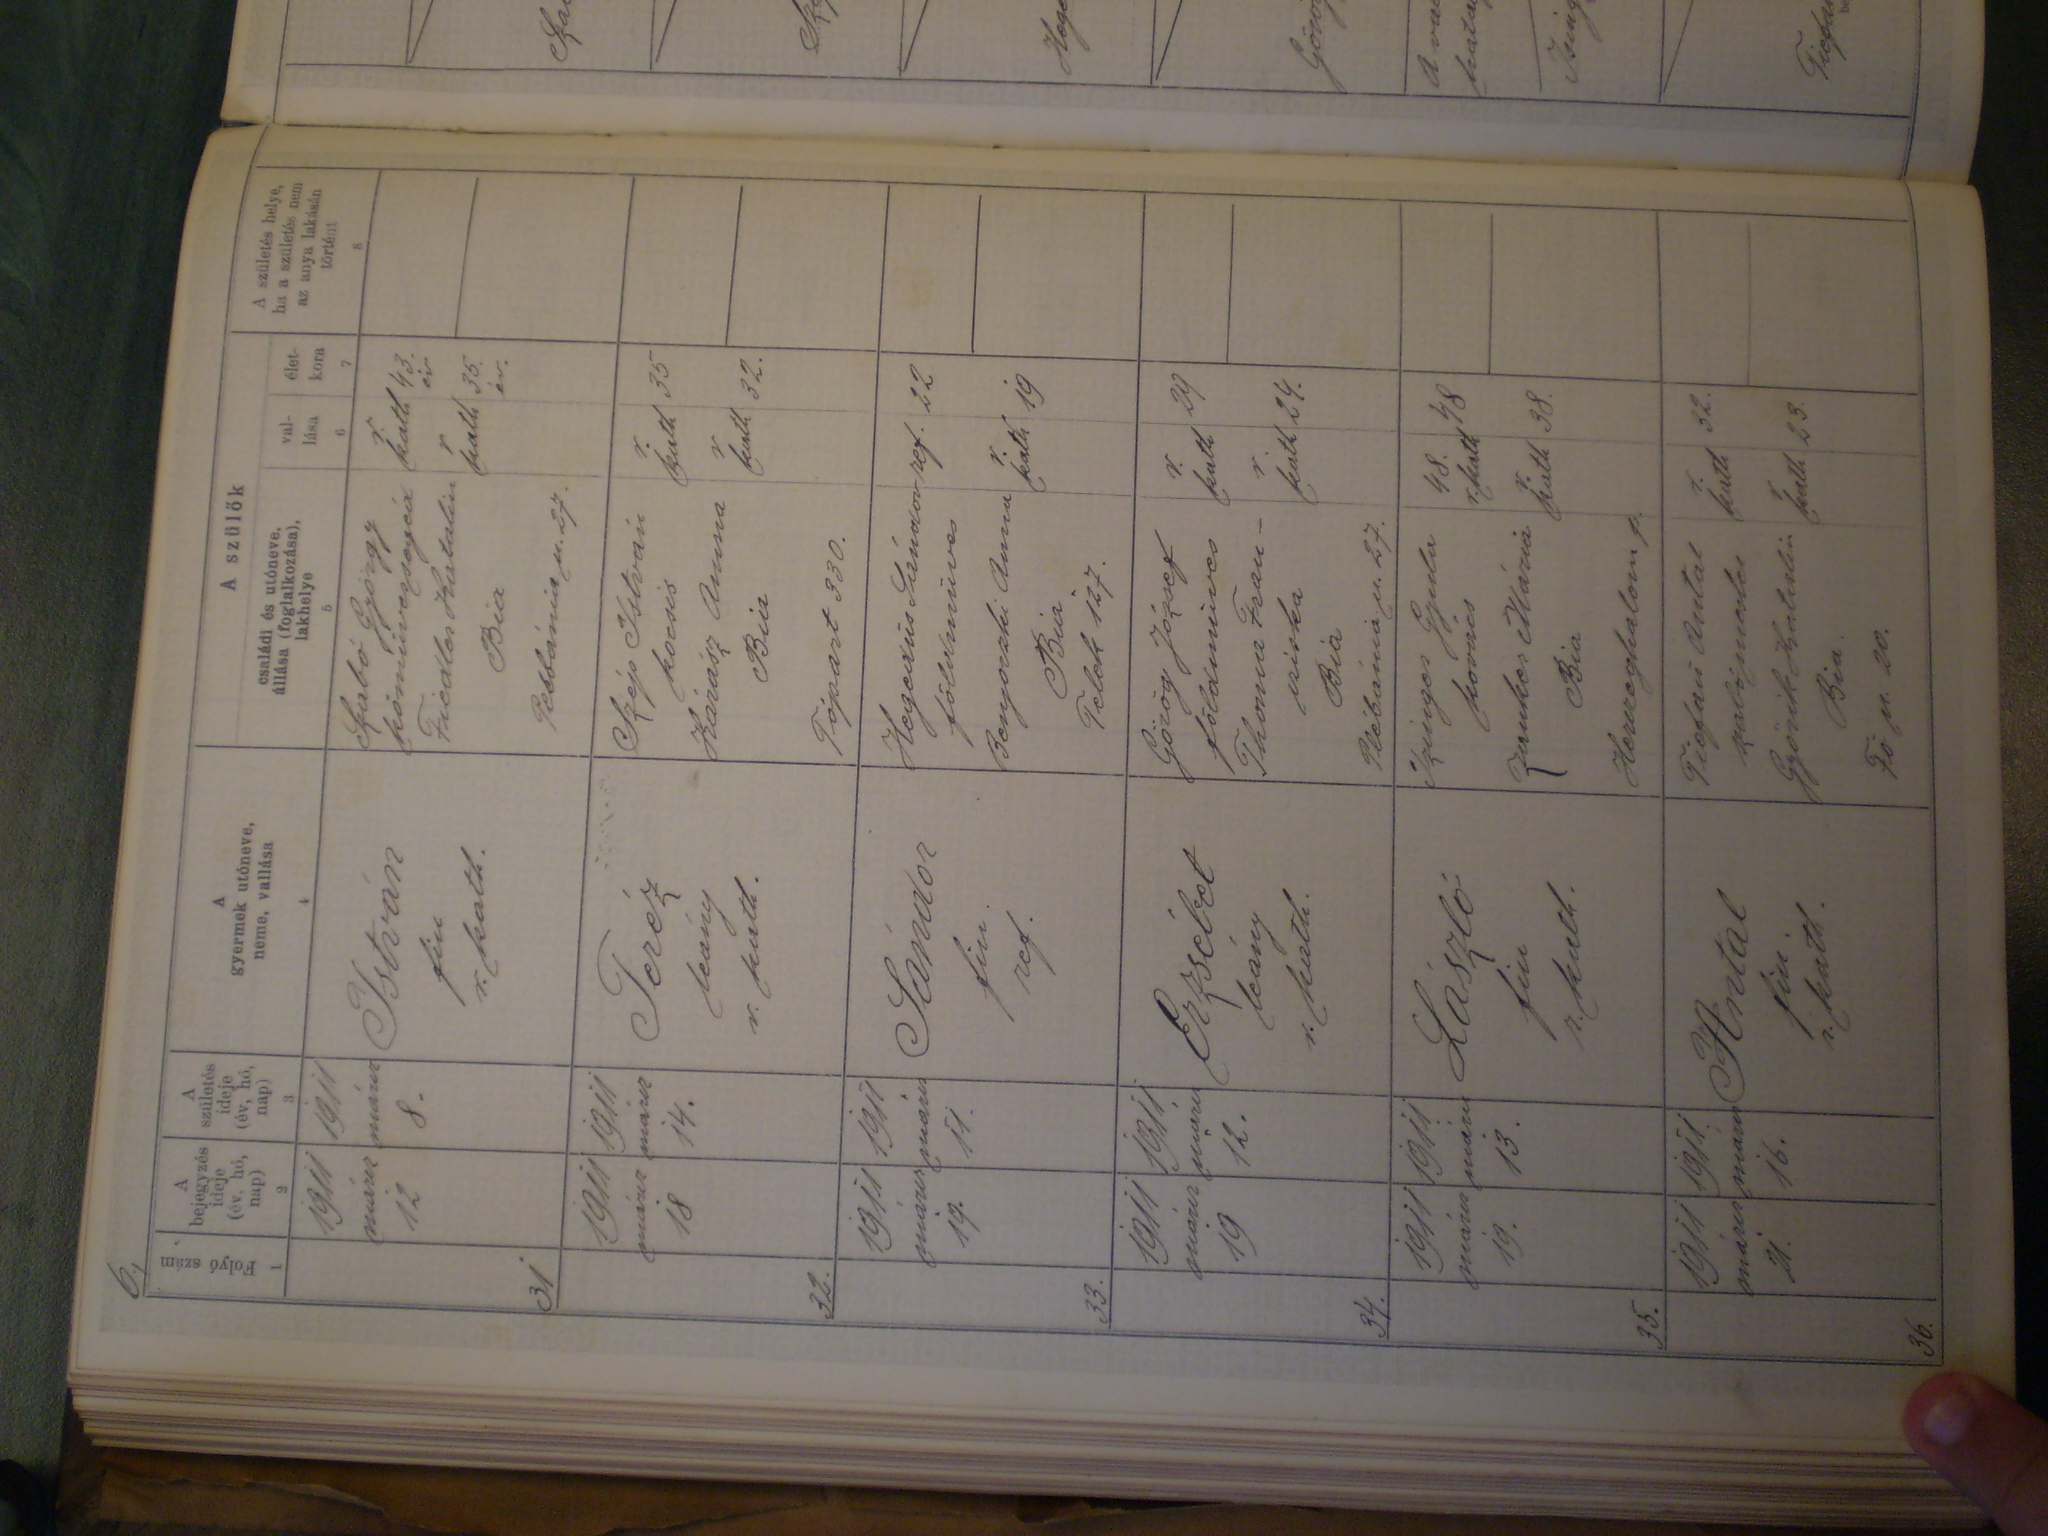 6.
Folyó szám
1
A
bejegyzés
ideje
(év, hó,
nap)
2
A
születés
ideje
(év, hó,
nap)
3
A
gyermek utóneve,
neme, vallása
4
A szülők
családi és utóneve,
állása (foglalkozása),
lakhelye
5
val-
lása
6
élet-
kora
7
A születés helye,
ha a születés nem
az anya lakásán
történt
8
31
1911
márcz
12
1911
márcz
8.
István
fiu
r. kath.
Szabó György
kőművessegéd
Friedler Katalin
Bia
Plébánia u. 27.
r.
kath
43.
év
r
kath
35.
év.
32.
1911
márcz
18
1911
márcz
14.
Teréz
leány
r. kath.
Szép István
kocsis
Kárász Anna
Bia
Tópart 330.
r.
kath
35
r
kath
32.
33.
1911
márcz
19.
1911
márcz
11.
Sándor
fiu.
ref.
Hegedüs Sándor
földmüves
Benyovzki Anna
Bia
Telek 127.
ref.
22
r.
kath
19
34.
1911
márcz
19
1911.
márcz
12.
Erzsébet
leány
r. kath.
Görög József
földmüves
Thoma Fran-
cziska
Bia
Plébánia u. 27.
r.
kath
29
r.
kath
24.
35.
1911
márcz
19.
1911.
márcz
13.
László
fiu
r. kath.
Izinger Gyula
kovács
Junker Mária
Bia
Herczeghalom p.
48.
r. kath
48
r.
kath
38.
36.
1911
márcz
21.
1911.
márcz
16.
Antal
fiu
r. kath.
Tiefau Antal
Györik Katalin
Bia.
Fő u. 20.
r.
kath
32.
r.
kath
23.